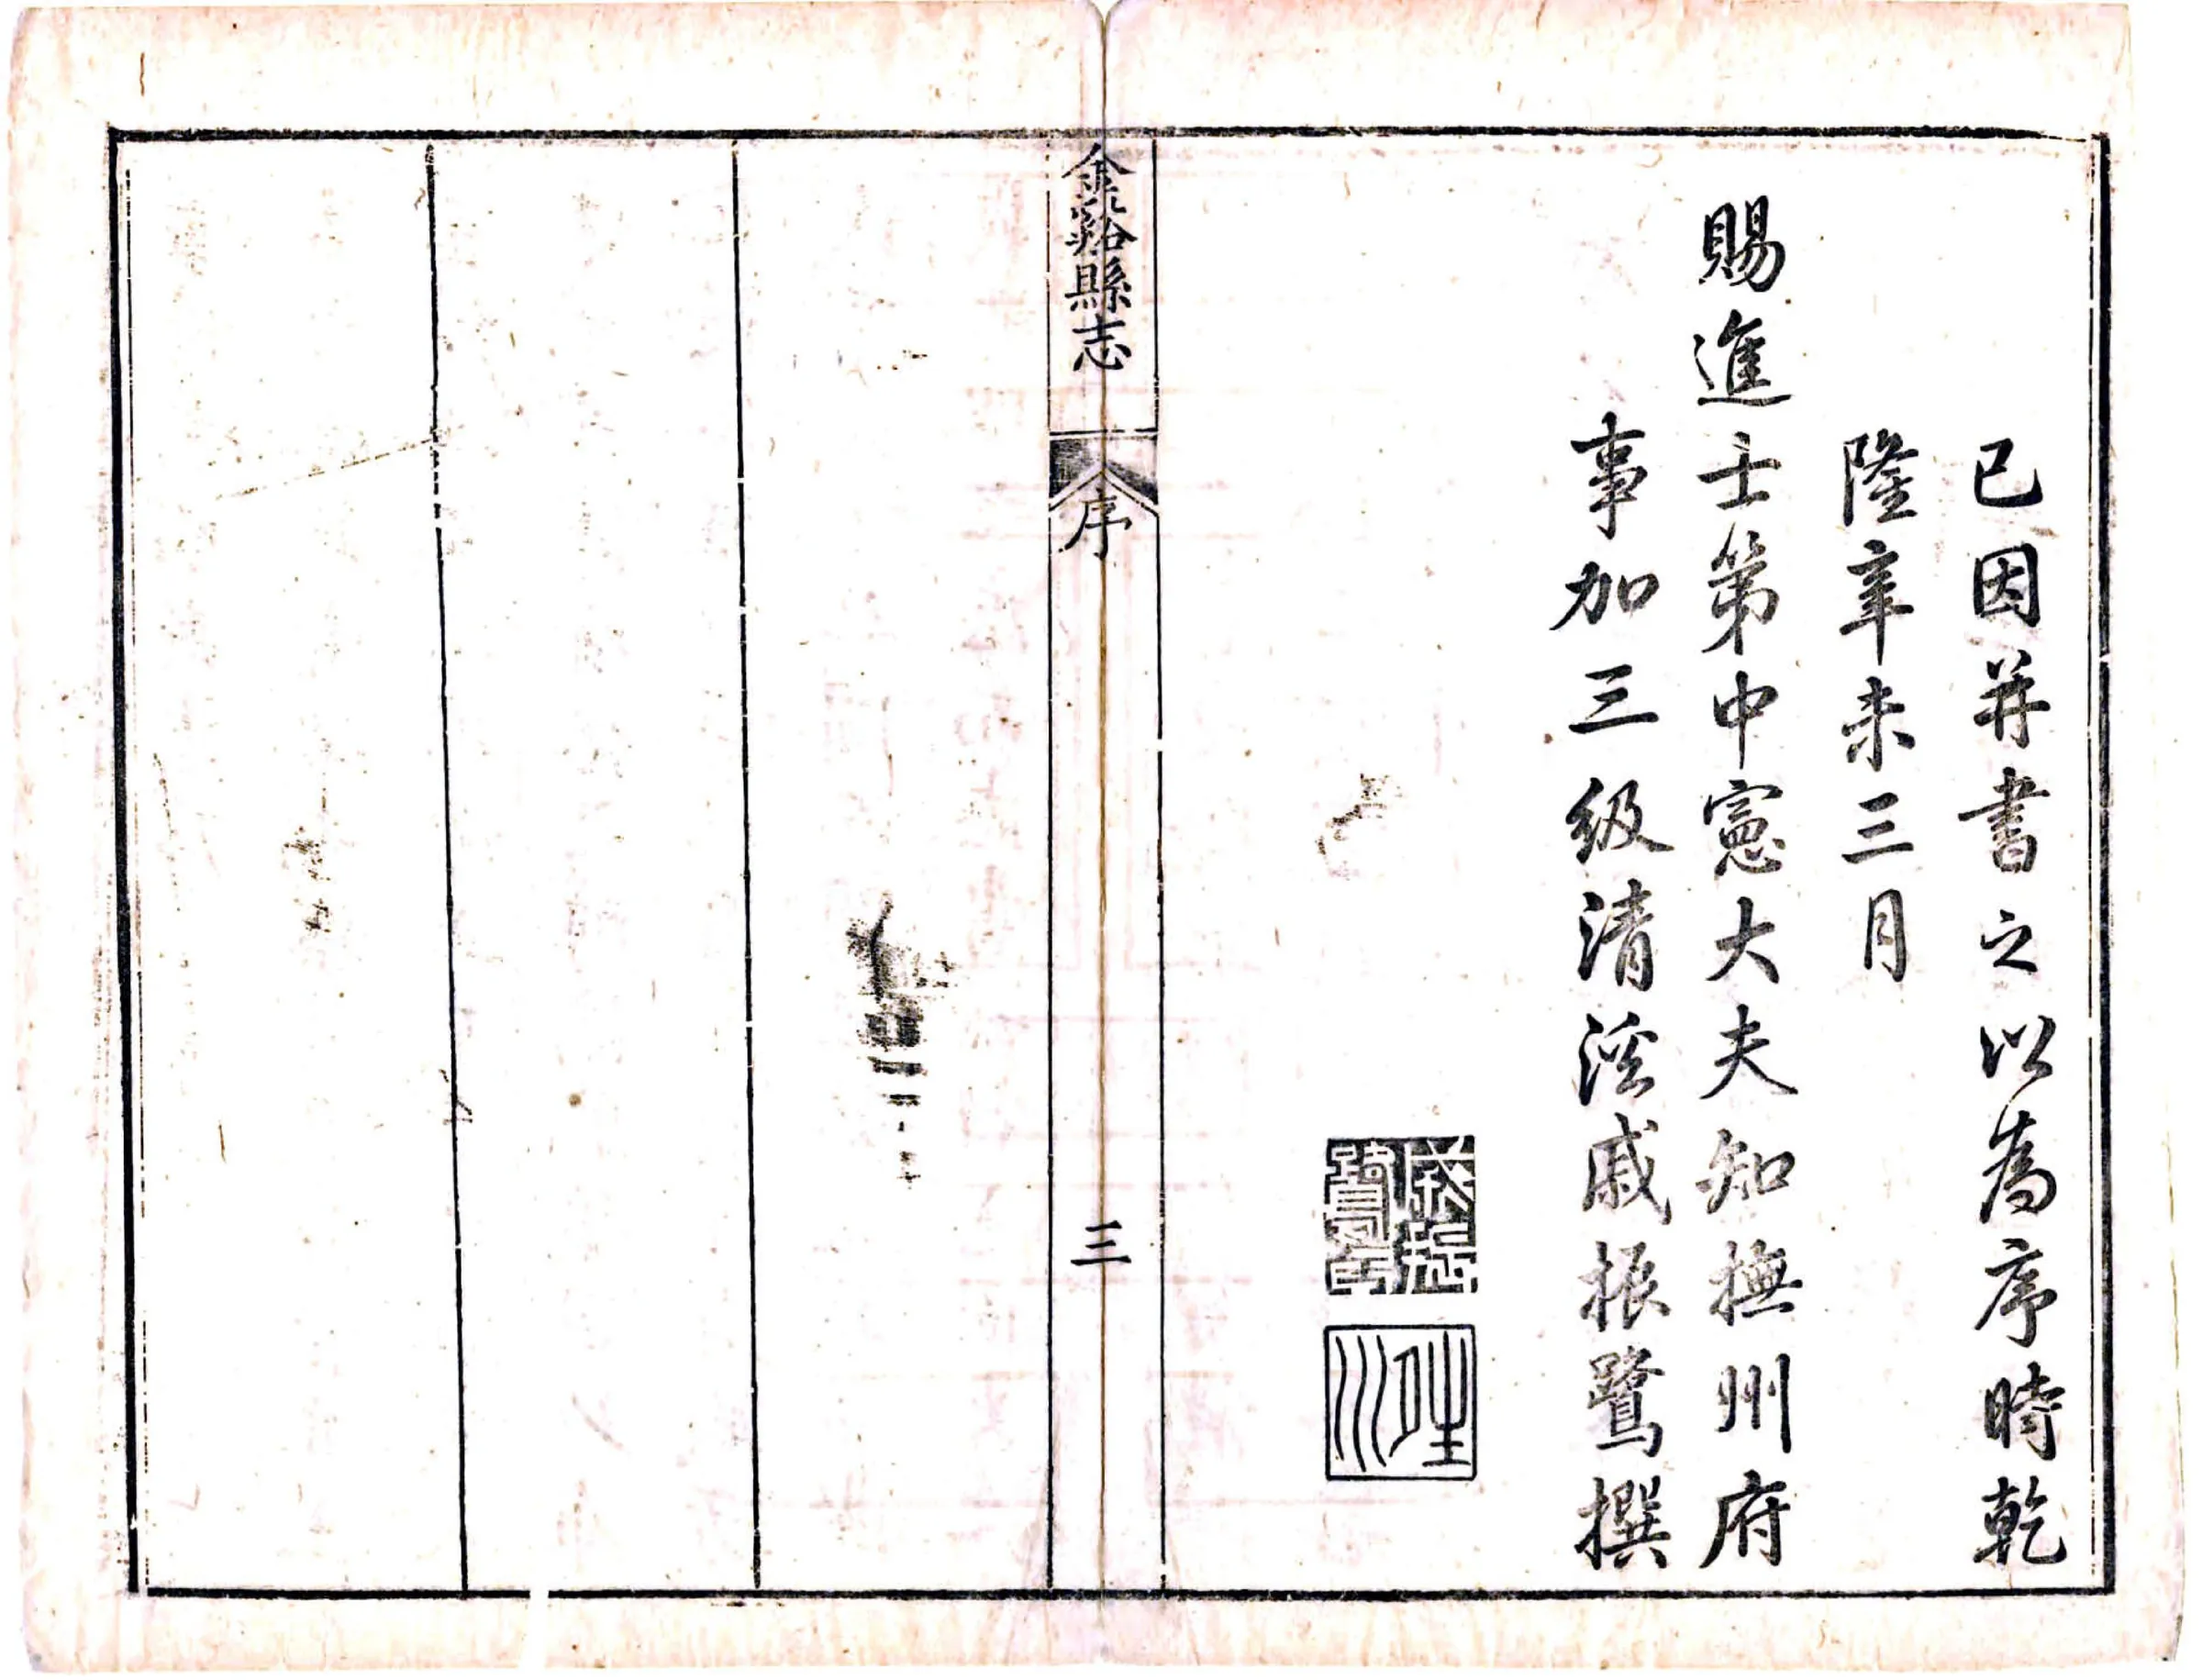 已因並書之以為序時乾
隆辛未三月
賜進士第中憲大夫知撫州府
事加三級清溪戚振鷺撰
金谿縣志
序
三